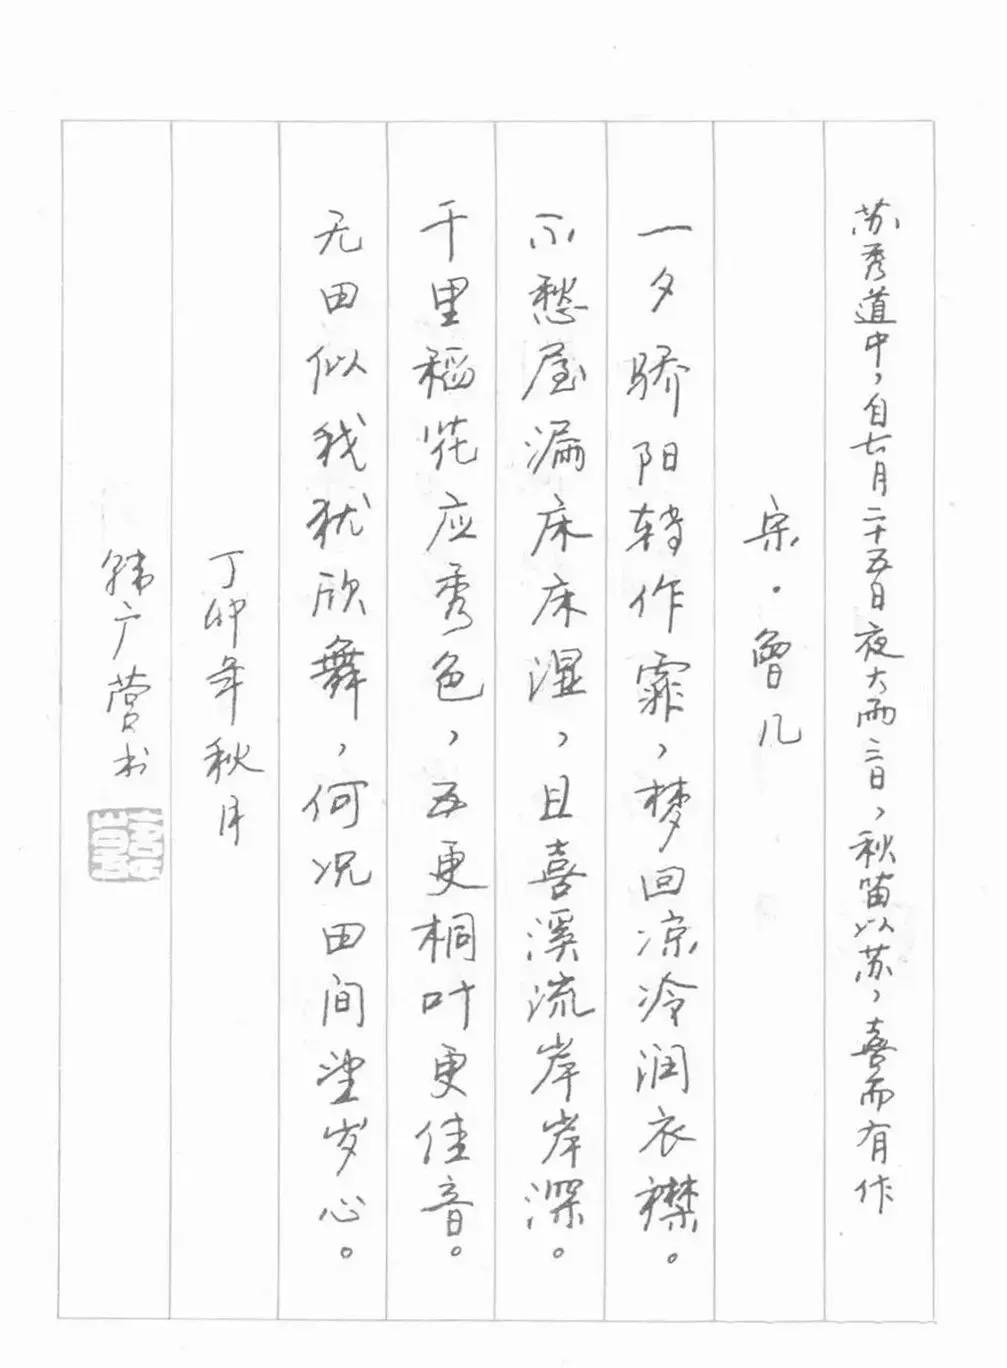 苏秀道中，自七月二十五日夜大雨三日，秋苗以苏，喜而有作
宋·曾几
一夕骄阳转作霖，梦回凉冷润衣襟。
不愁屋漏床床湿，且喜溪流岸岸深。
千里稻花应秀色，五更桐叶更佳音。
无田似我犹欣舞，何况田间望岁心。
丁卯年秋月
韩广营书